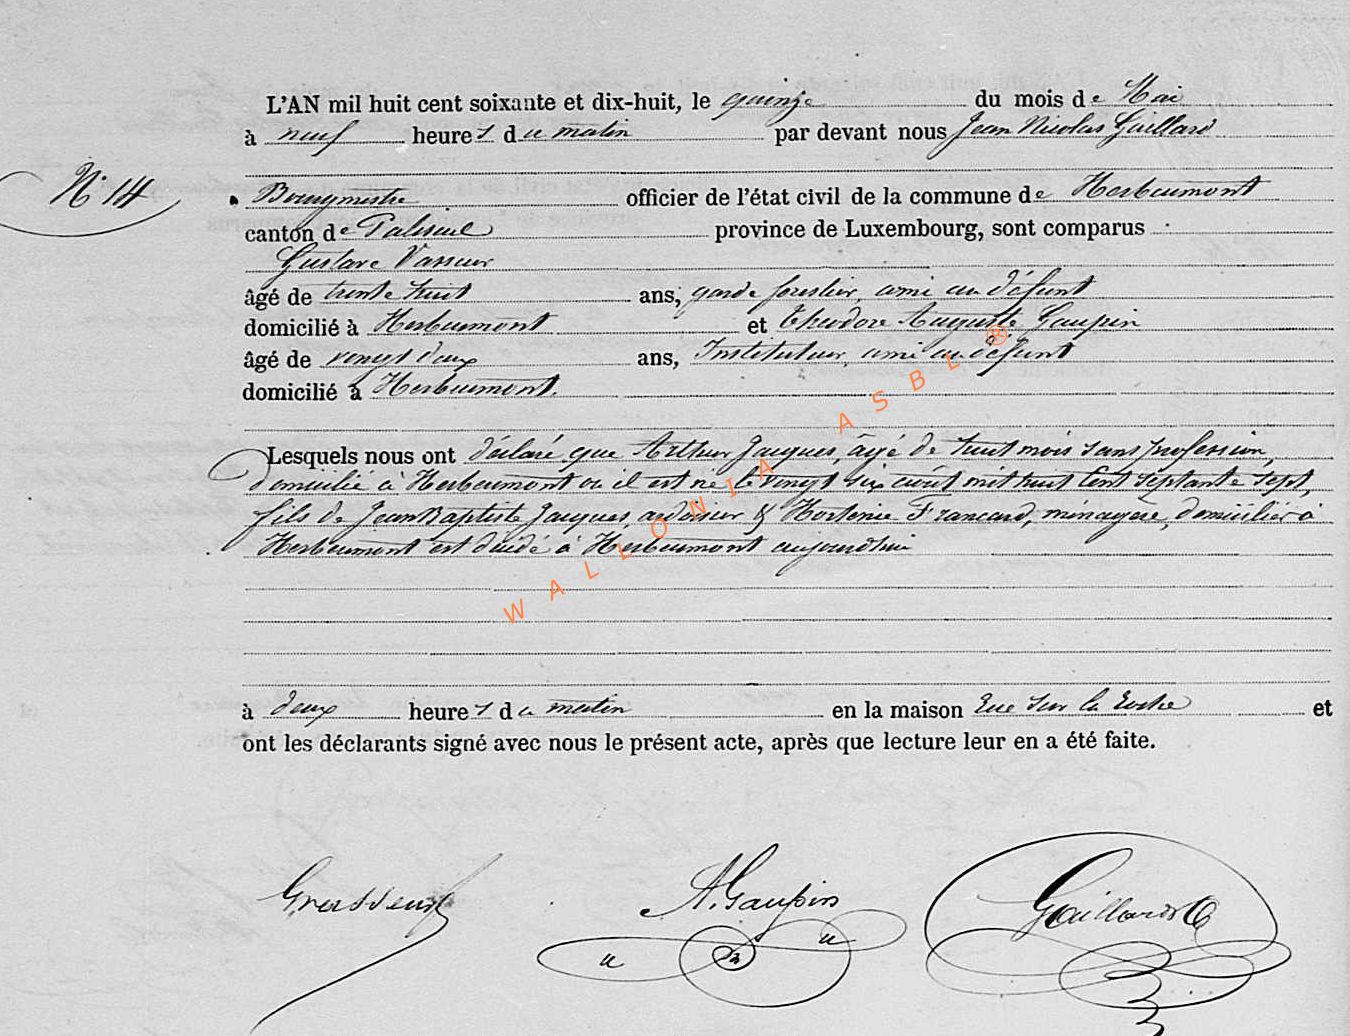 L'AN mil huit cent soixante et dix-huit, le quinze du mois de Mai
à neuf heures du matin par devant nous Jean Nicolas Gaillard
N° 14
Bourgmestre officier de l'état civil de la commune de Herbeumont
canton de Paliseul province de Luxembourg, sont comparus
Gustave Vasseur
âgé de trente huit ans, garde forestier, ami au défunt
domicilié à Herbeumont et Théodore Auguste Gaupin
âgé de vingt deux ans, Instituteur, ami au défunt
domicilié à Herbeumont.
Lesquels nous ont déclaré que Arthur Jacques, âgé de huit mois sans profession,
domicilié à Herbeumont où il est né le vingt six août mil huit cent septante sept,
fils de Jean Baptiste Jacques, ardoisier & Hortense Francard, ménagère, domiciliés à
Herbeumont est décédé à Herbeumont aujourd'hui
à deux heures du matin en la maison Rue sur la Roche et
ont les déclarants signé avec nous le présent acte, après que lecture leur en a été faite.
A. Gaupin
Gaillard
WALLONIA ASBL ®